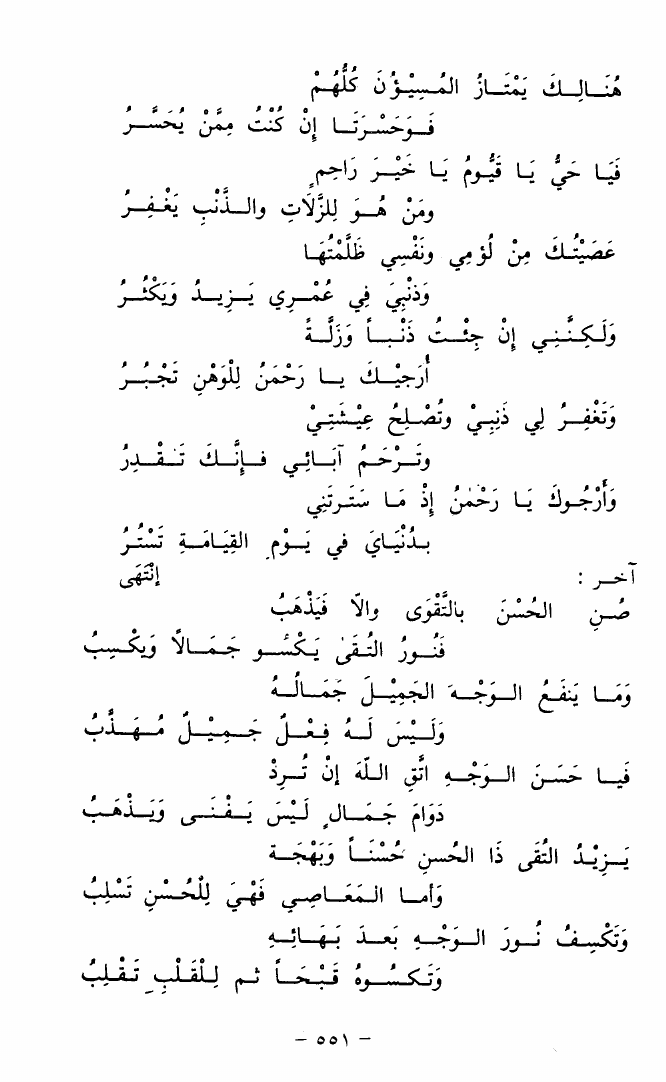 هُنَالِكَ يَمْتَازُ المُسِيْؤُنَ كُلُّهُمْ
فَوَحَسْرَتَا إِنْ كُنْتُ مِمَّنْ يُخَسَّرُ
فَيَا حَيُّ يَا قَيُّومُ يَا خَيْرَ رَاحِمٍ
وَمَنْ هُوَ لِلزَّلَاتِ والذَّنْبِ يَغْفِرُ
عَصَيْتُكَ مِنْ لُؤمِي وَنَفْسِي ظَلَمْتُهَا
وَذَنْبِيَ فِي عُمْرِي يَزِيدُ وَيَكْثُرُ
وَلَكِنَّنِي إِنْ جِئْتُ ذَنْباً وَزَلَّةً
أُرَجِيْكَ يا رَحْمَنُ لِلْوَهْنِ تَجْبُرُ
وَتَغْفِرُ لِي ذَنْبِيْ وتُصْلِحُ عِيْشَتِيْ
وَتَرْحَمُ آبَائِي فَإِنَّكَ تَقْدِرُ
وَأَرْجُوكَ يَا رَحْمٰنُ إِذْ مَا سَتَرتَنِي
بِدُنْيَايَ في يَوْمِ القِيَامَةِ تَسْتُرُ
آخر : إِنْتَهَى
صُنِ الحُسْنَ بالتَّقْوَى والاَّ فَيَذْهَبُ
فَنُورُ التُّقَىٰ يَكْسُو جَمَالاً وَيَكْسِبُ
وَمَا يَنفَعُ الوَجْهَ الجَمِيْلَ جَمَالُهُ
وَلَيْسَ لَهُ فِعْلٌ جَمِيْلٌ مُهَذَّبُ
فيا حَسَنَ الوَجْهِ اتَّقِ اللّهَ إِنْ تُرِدْ
دَوَامَ جَمَالٍ لَيْسَ يَفْنَى وَيَذْهَبُ
يَزِيْدُ التُّقَى ذَا الحُسنِ حُسْنَاً وَبَهْجَةً
وَأما المَعَاصِي فَهْيَ لِلْحُسْنِ تَسْلِبُ
وَتَكْسِفُ نُورَ الوَجْهِ بَعدَ بَهَائِهِ
وَتَكسُوهُ قَبْحَاً ثم لِلْقَلْبِ تَقْلِبُ
– ٥٥١ –